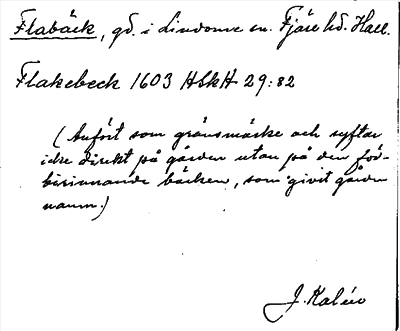 Flabäck, gd. i Lindome sn. Fjäre hd. Hall.
Flakebeck 1603 HSkH 29:82
(Anfört som gränsmärke och syftar
icke direkt på gården utan på den för-
birinnande bäcken, som givit gården
namn.)
J. Kalén